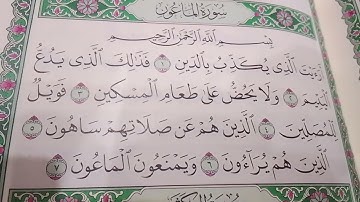 سُورَةُ الْمَاعُونِ
بِسْمِ اللَّهِ الرَّحْمَٰنِ الرَّحِيمِ
أَرَءَيْتَ الَّذِي يُكَذِّبُ بِالدِّينِ ١ فَذَٰلِكَ الَّذِي يَدُعُّ
الْيَتِيمَ ٢ وَلَا يَحُضُّ عَلَىٰ طَعَامِ الْمِسْكِينِ ٣ فَوَيْلٌ
لِّلْمُصَلِّينَ ٤ الَّذِينَ هُمْ عَن صَلَاتِهِمْ سَاهُونَ ٥
الَّذِينَ هُمْ يُرَاءُونَ ٦ وَيَمْنَعُونَ الْمَاعُونَ ٧